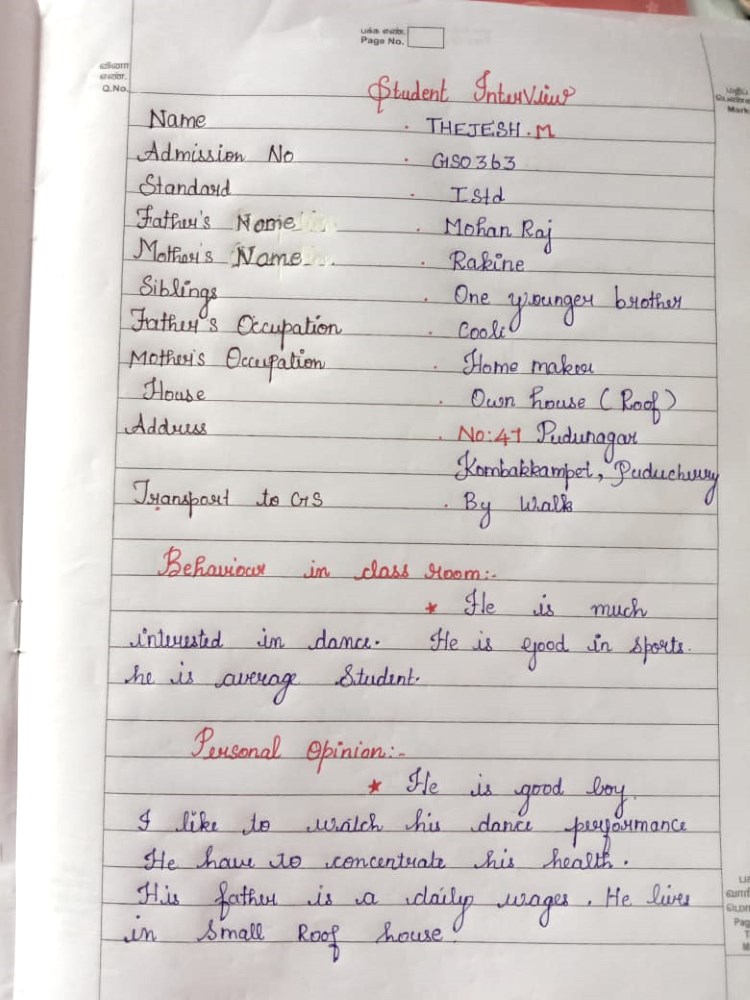 பக்க எண்.
Page No.
வினா
எண்.
Q.No.
Student Interview
Name . THEJESH.M
Admission No . GS0363
Standard . I Std
Father's Name . Mohan Raj
Mother's Name . Rakine
Siblings . One younger brother
Father's Occupation . Cooli
Mother's Occupation . Home maker
House . Own house (Roof)
Address . No:41 Pudunagar
Kombakkampet, Puducherry
Transport to GS . By Walk
Behaviour in class room:-
* He is much
interested in dance. He is good in sports.
he is average Student.
Personal Opinion:-
* He is good boy.
I like to watch his dance performance
He have to concentrate his health.
His father is a daily wages. He lives
in Small Roof house.